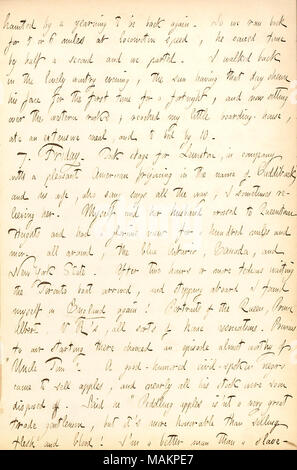 haunted by a yearning to be back again. So we ran back
for 5 or 6 miles at locomotive speed, he caused fame
by half a second and we parted. I walked back
in the lively wintry evening, the sun having that day shown
his face for the first time for a fortnight, and now setting
over the western woods; reached my little boarding house,
ate an extensive meal, and to bed by 10.
7. Friday. Took stage for Lewiston, in company
with a pleasant American
and his wife, who sang all the way, I sometimes re-
lieving her. Myself and her husband crossed to Queenstown
Heights and had a view for hundred miles and
more all around, the blue Ontario, Canada, and
New York State. After two hours or more tedious waiting
the Toronto boat arrived, and stepping aboard I found
myself in England again! Portrait of the Queen, Prince
Albert. V R's, all sorts of home
to our starting there chanced an episode almost worthy of
"Uncle Tom". A good-humored civil-spoken negro
came to sell apples, and nearly all his stock were soon
disposed of. Said he "Peddling apples isn't a very great
trade gentlemen, but it's more honorable than selling
flesh and blood! I'm a better man than a slave-
alamy
Image ID: MAKPE7
www.alamy.com